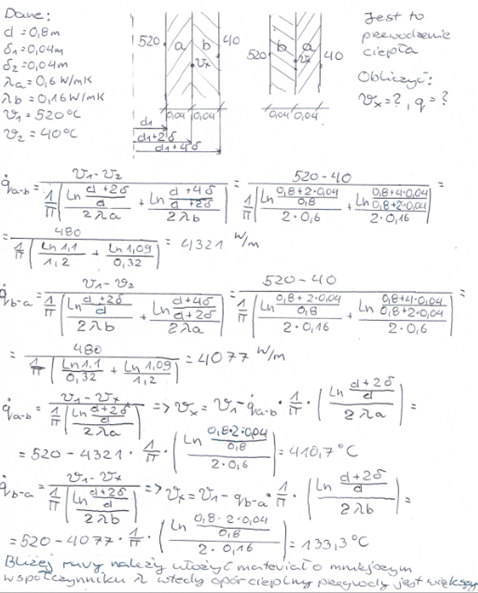 Dane:
d = 0,8m
δ1 = 0,04m
δ2 = 0,04m
λa = 0,6 W/mK
λb = 0,16 W/mK
ϑ1 = 520°C
ϑ2 = 40°C
520 a b 40
ϑx
0,04 0,04
d1
d1+2δ
d1+4δ
520 b a 40
ϑx
0,04 0,04
Jest to
przewodzenie
ciepła
Obliczyć:
ϑx = ?, q = ?
q̇a-b = (ϑ1-ϑ2) / (1/π (ln((d+2δ)/d)/(2λa) + ln((d+4δ)/(d+2δ))/(2λb))) = (520-40) / (1/π (ln((0,8+2·0,04)/0,8)/(2·0,6) + ln((0,8+4·0,04)/(0,8+2·0,04))/(2·0,16))) =
= 480 / (1/π (ln1,1/1,2 + ln1,09/0,32)) = 4321 W/m
q̇b-a = (ϑ1-ϑ2) / (1/π (ln((d+2δ)/d)/(2λb) + ln((d+4δ)/(d+2δ))/(2λa))) = (520-40) / (1/π (ln((0,8+2·0,04)/0,8)/(2·0,16) + ln((0,8+4·0,04)/(0,8+2·0,04))/(2·0,6))) =
= 480 / (1/π (ln1,1/0,32 + ln1,09/1,2)) = 4077 W/m
q̇a-b = (ϑ1-ϑx) / (1/π (ln((d+2δ)/d)/(2λa))) => ϑx = ϑ1 - q̇a-b · 1/π · (ln((d+2δ)/d)/(2λa)) =
= 520 - 4321 · 1/π · (ln((0,8·2·0,04)/0,8)/(2·0,6)) = 410,7°C
q̇b-a = (ϑ1-ϑx) / (1/π (ln((d+2δ)/d)/(2λb))) => ϑx = ϑ1 - qb-a · 1/π · (ln((d+2δ)/d)/(2λb)) =
= 520 - 4077 · 1/π · (ln((0,8·2·0,04)/0,8)/(2·0,16)) = 133,3°C
Bliżej rury należy ułożyć materiał o mniejszym
współczynniku λ wtedy opór cieplny przegrody jest większy